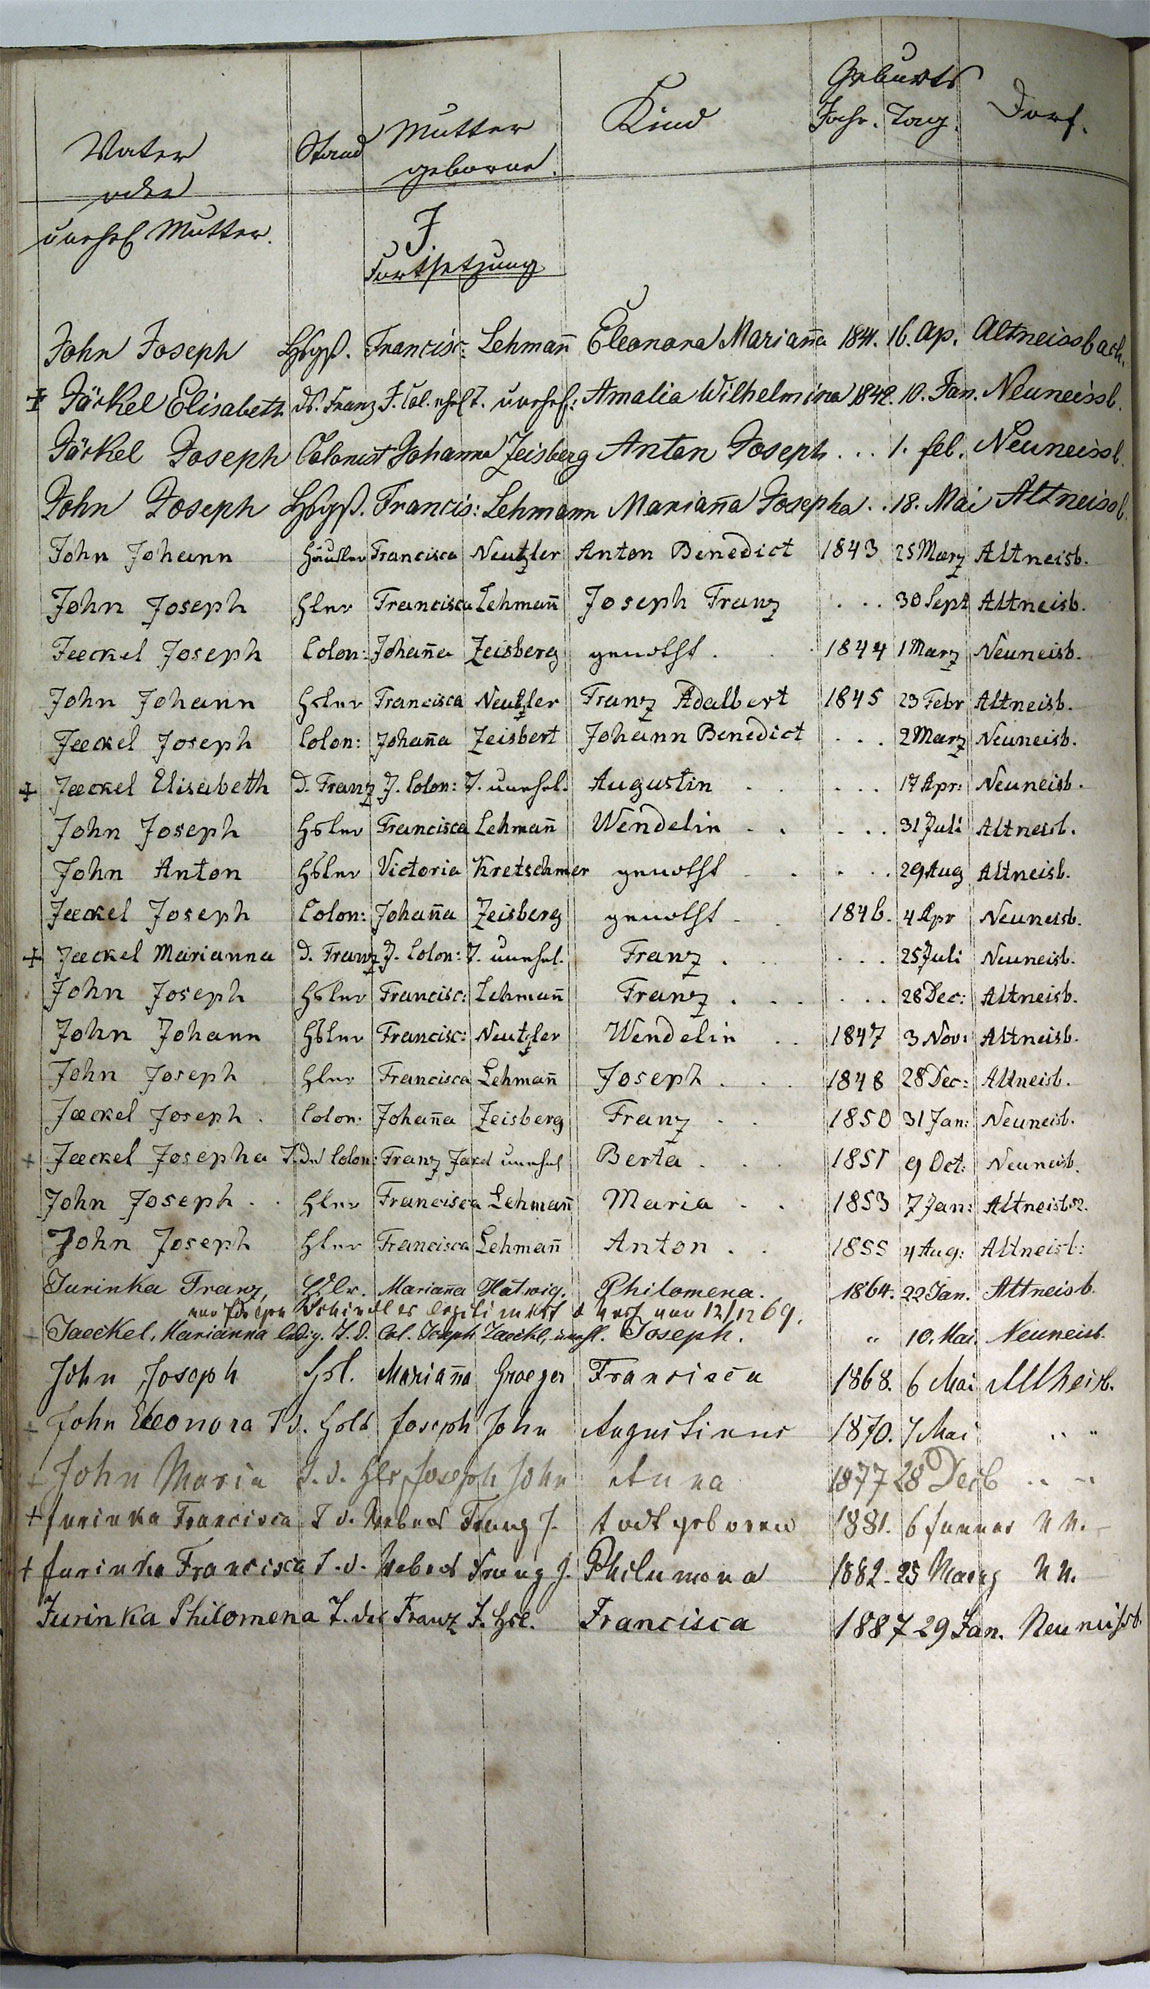 Geburts
Vater Stand Mutter Kind Jahr. Tag. Dorf.
oder geborne.
unehl Mutter.
J.
Fortsetzung
John Joseph Francisc: Lehman̄ Eleonora Marian̄a 1841. 16. Ap. Altneissbach.
+ Jäckel Elisabeth. Franz J. Col. T. unehel: Amalia Wilhelmina 1842. 10. Jan. Neuneissb.
Jäckel Joseph Colonist Johanna Zeisberg Anton Joseph . . . 1. feb. Neuneissb.
John Joseph Francis: Lehmann Marian̄a Josepha . . 18. Mai Altneissb.
John Johann Häusler Francisca Neutzler Anton Benedict 1843 25 Maerz Altneisb.
John Joseph Hsler Francisca Lehman̄ Joseph Franz . . . 30 Sept Altneisb.
Jaeckel Joseph Colon: Johan̄a Zeisberg genotht . 1844 1 Maerz Neuneisb.
John Johann Hsler Francisca Neutzler Franz Adalbert 1845 23 Febr Altneisb.
Jaeckel Joseph Colon: Johan̄a Zeisbert Johann Benedict . . . 2 Maerz Neuneisb.
+ Jaeckel Elisabeth d. Franz J. Colon: T. unehel. Augustin . . . . 17 Apr: Neuneisb.
John Joseph Hsler Francisca Lehman̄ Wendelin . . . . . 31 Juli Altneisb.
John Anton Hsler Victoria Kretschmer genotht . . . . 29 Aug Altneisb.
Jaeckel Joseph Colon: Johan̄a Zeisberg genotht . 1846. 4 Apr Neuneisb.
+ Jaeckel Marianna d. Franz J. Colon: T. unehel. Franz . . . . . 25 Juli Neuneisb.
John Joseph Hsler Francisc: Lehman̄ Franz . . . . . . 28 Dec: Altneisb.
John Johann Hsler Francisc: Neutzler Wendelin . . 1847 3 Nov: Altneisb.
John Joseph Hsler Francisca Lehman̄ Joseph . . . 1848 28 Dec: Altneisb.
Jaeckel Joseph . Colon: Johan̄a Zeisberg Franz . . 1850 31 Jan: Neuneisb.
+ Jaeckel Josepha T. Des Colon: Franz unehel Berta . . . 1851 9 Oct: Neuneisb.
John Joseph . . Hsler Francisca Lehman̄ Maria . . 1853 7 Jan: Altneisb.
John Joseph Hsler Francisca Lehman̄ Anton . . 1855 4 Aug: Altneisb:
Jurinka Franz, Hslr. Marian̄a Hatwig. Philomena. 1864. 22 Jan. Altneisb.
Schindler 12/12 69.
+ Jaeckel, Marianna ledig. T. d. Col. Joseph Jaeckl, unehl. Joseph. " 10. Mai. Neuneisb.
John Joseph Hsl. Marian̄a Graeger Francisca 1868. 6 Mai Altneisb.
+ John Eleonora T d. Joseph John Augustinus 1870. 7 Mai " "
+ John Maria T. d. Hslr Joseph John Anna 1877 28 Decb " "
+ Jurinka Francisca T d. Webers Franz J. todt geboren 1881. 6 Januar N N. -
+ Jurinka Francisca T. d. Webers Franz J. Philumena 1882. 25 Maerz N N.
Jurinka Philomena T. des Franz J. Hsl. Francisca 1887 29 Jan. Neuneisb.